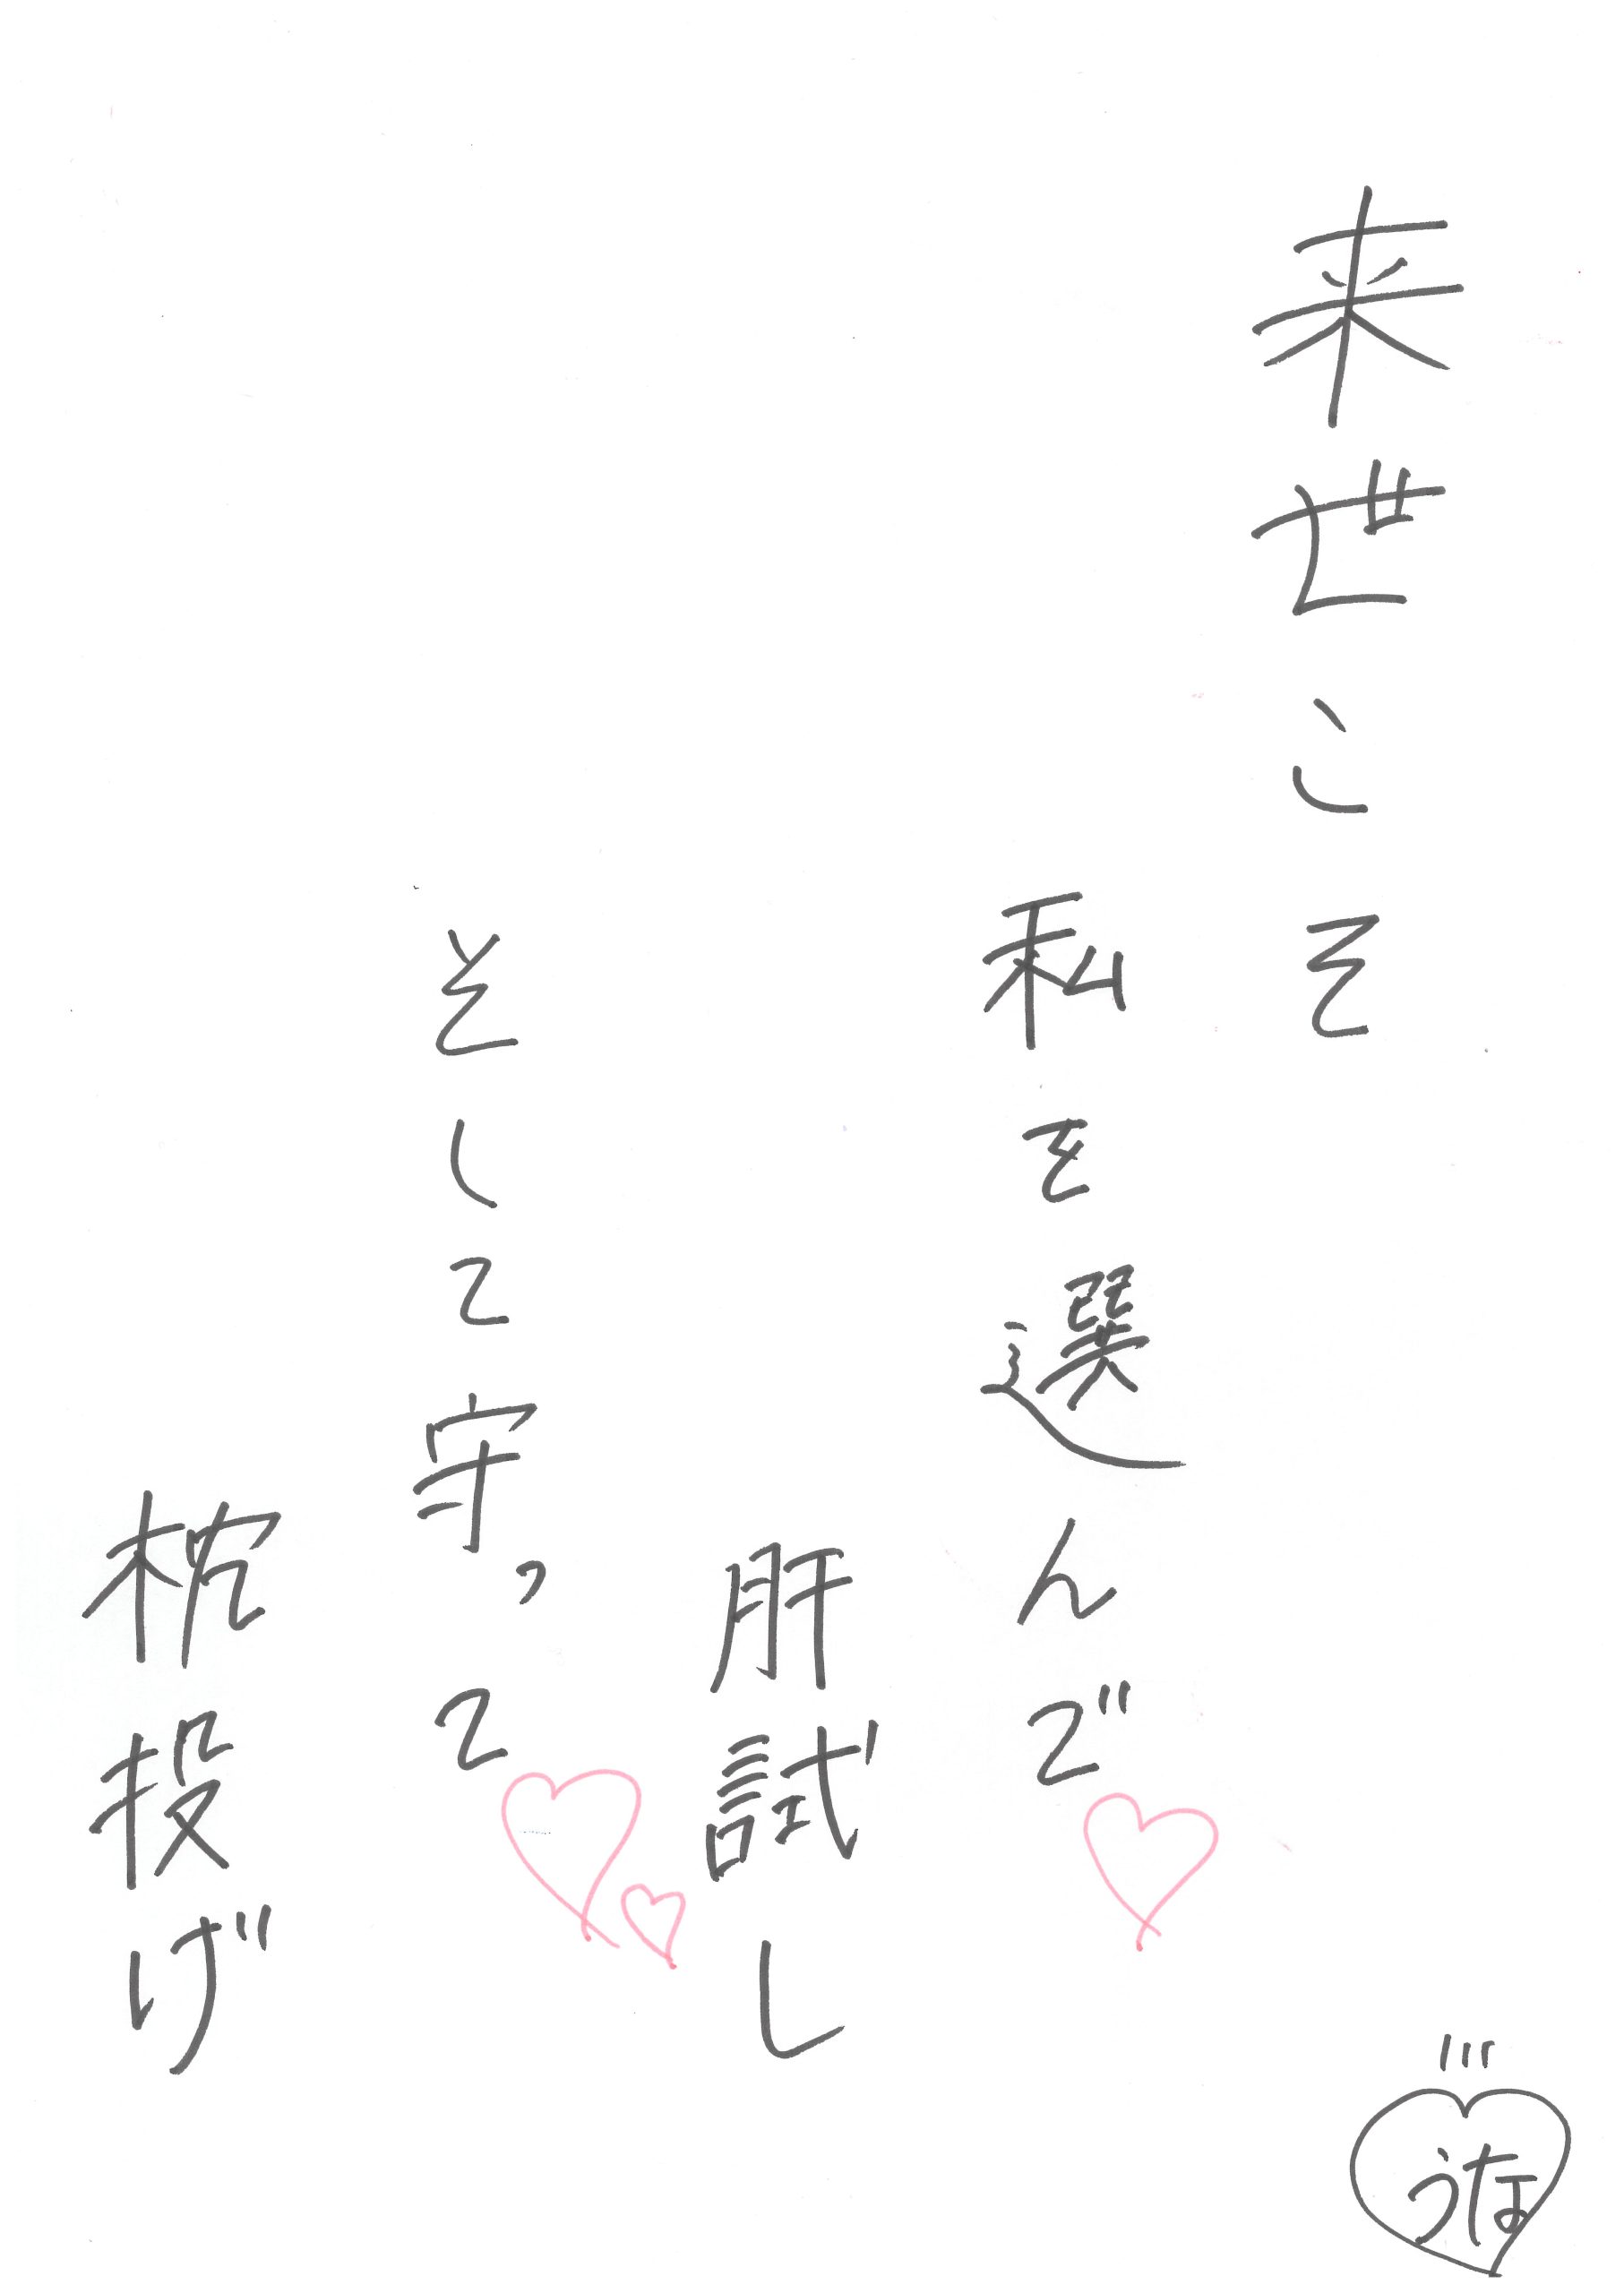 来世こそ
私を選んで
肝試し
そして守って
枕投げ
うな